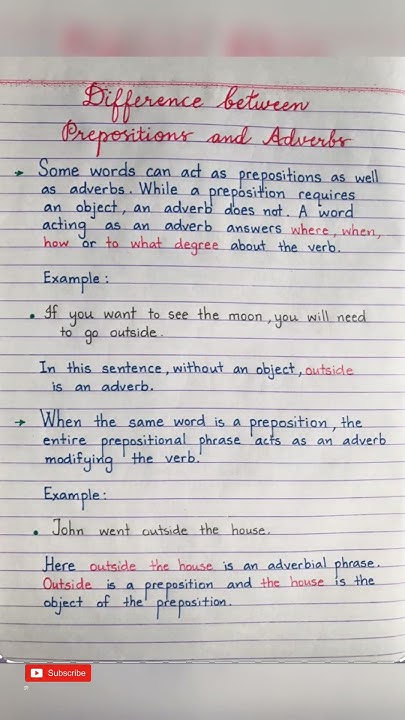 Difference between
Prepositions and Adverbs
→ Some words can act as prepositions as well
as adverbs. While a preposition requires
an object, an adverb does not. A word
acting as an adverb answers where, when,
how or to what degree about the verb.
Example :
• If you want to see the moon, you will need
to go outside.
In this sentence, without an object, outside
is an adverb.
→ When the same word is a preposition, the
entire prepositional phrase acts as an adverb
modifying the verb.
Example :
• John went outside the house.
Here outside the house is an adverbial phrase.
Outside is a preposition and the house is the
object of the preposition.
Subscribe